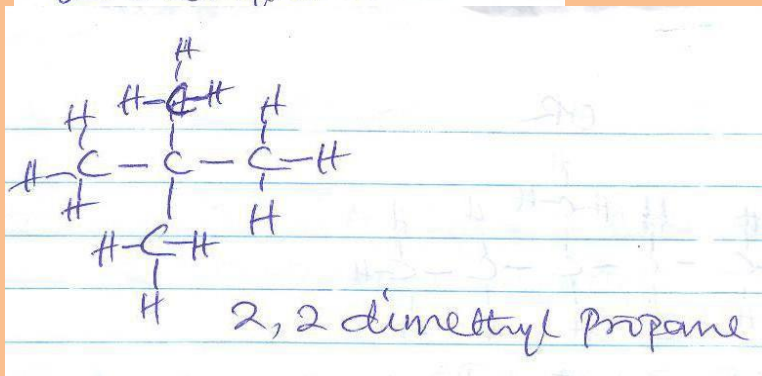 H
H-C-H
H H
H-C - C - C-H
H H
H-C-H
H
2,2 dimethyl propane